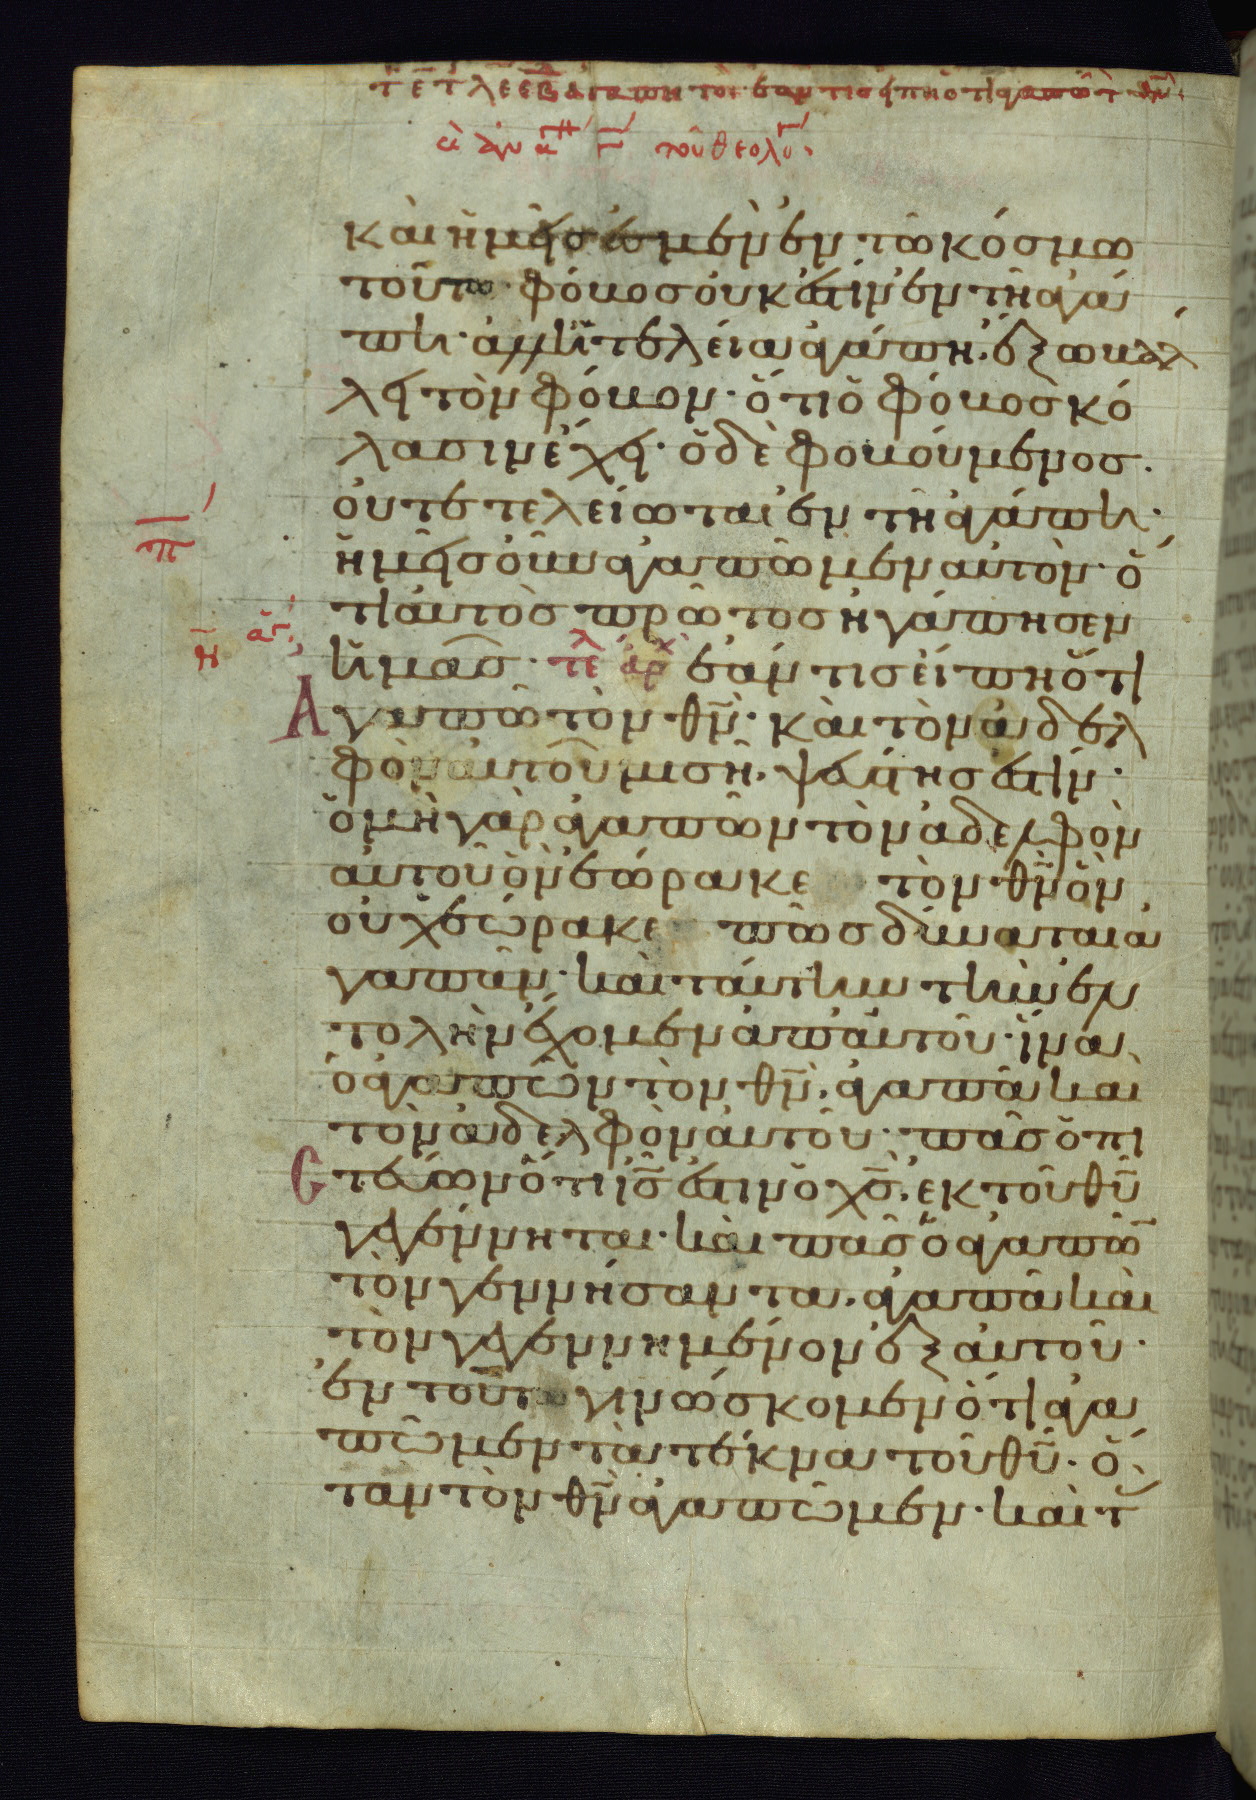 καὶ ἡμεῖς ἐσμὲν ἐν τῶ κόσμω
τούτω· φόβος οὐκ ἔστιν ἐν τῆ ἀγά
πη· ἀλλ' ἡ τελεία ἀγάπη, ἔξω βάλ
λει τὸν φόβον· ὅτι ὁ φόβος κό
λασιν ἔχει· ὁ δὲ φοβούμενος·
οὐ τετελείωται ἐν τῆ ἀγάπη·
ἡμεῖς οὖν ἀγαπῶμεν αὐτὸν· ὅ
τι αὐτὸς πρῶτος ἠγάπησεν
ἡμᾶς· τλ ἀρχ ἐάν τις εἴπη ὅτι
Ἀγαπῶ τὸν θν· καὶ τὸν ἀδελ
φὸν αὐτοῦ μισῆ, ψεύστης ἐστίν·
ὁ μὴ γὰρ ἀγαπῶν τὸν ἀδελφὸν
αὐτοῦ ὃν ἑώρακε τὸν θν ὃν
οὐχ ἑώρακε πῶς δύναται ἀ
γαπᾶν· καὶ ταύτην τὴν ἐν
τολὴν ἔχομεν ἀπ' αὐτοῦ· ἵνα
ὁ ἀγαπῶν τὸν θν, ἀγαπᾶ καὶ
τὸν ἀδελφὸν αὐτοῦ· πᾶς ὁ πι
στεύων ὅτι ις ἐστιν ὁ χς, ἐκ τοῦ θυ
γεγέννηται· καὶ πᾶς ὁ ἀγαπῶ
τὸν γεννήσαντα, ἀγαπᾶ καὶ
τὸν γεγεννημένον ἐξ αὐτοῦ·
ἐν τούτω γινώσκομεν ὅτι ἀγα
πῶμεν τὰ τέκνα τοῦ θυ· ὅ
ταν τὸν θν ἀγαπῶμεν· καὶ τ